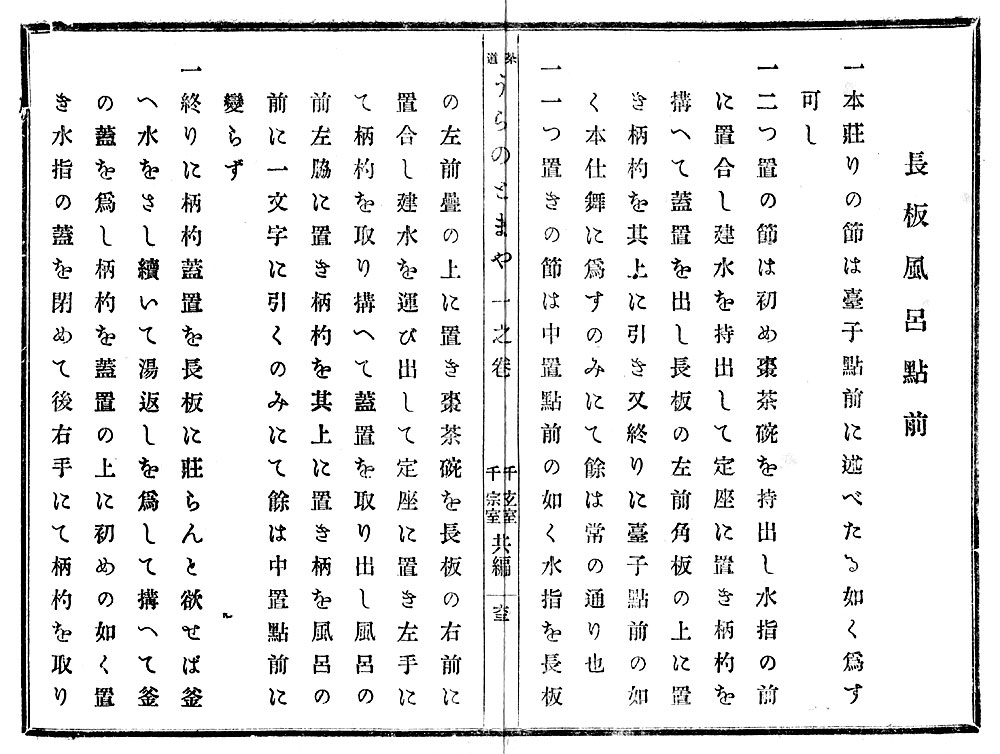 長板風呂點前
一本莊りの節は臺子點前に述べたる如く爲す
可し
一二つ置の節は初め棗茶碗を持出し水指の前
に置合し建水を持出して定座に置き柄杓を
搆へて蓋置を出し長板の左前角板の上に置
き柄杓を其上に引き又終りに臺子點前の如
く本仕舞に爲すのみにて餘は常の通り也
一一つ置きの節は中置點前の如く水指を長板
茶道
うらのとまや 一之卷
千玄室
千宗室
共編
の左前疊の上に置き棗茶碗を長板の右前に
置合し建水を運び出して定座に置き左手に
て柄杓を取り搆へて蓋置を取り出し風呂の
前左脇に置き柄杓を其上に置き柄を風呂の
前に一文字に引くのみにて餘は中置點前に
變らず
一終りに柄杓蓋置を長板に莊らんと欲せば釜
へ水をさし續いて湯返しを爲して搆へて釜
の蓋を爲し柄杓を蓋置の上に初めの如く置
き水指の蓋を閉めて後右手にて柄杓を取り